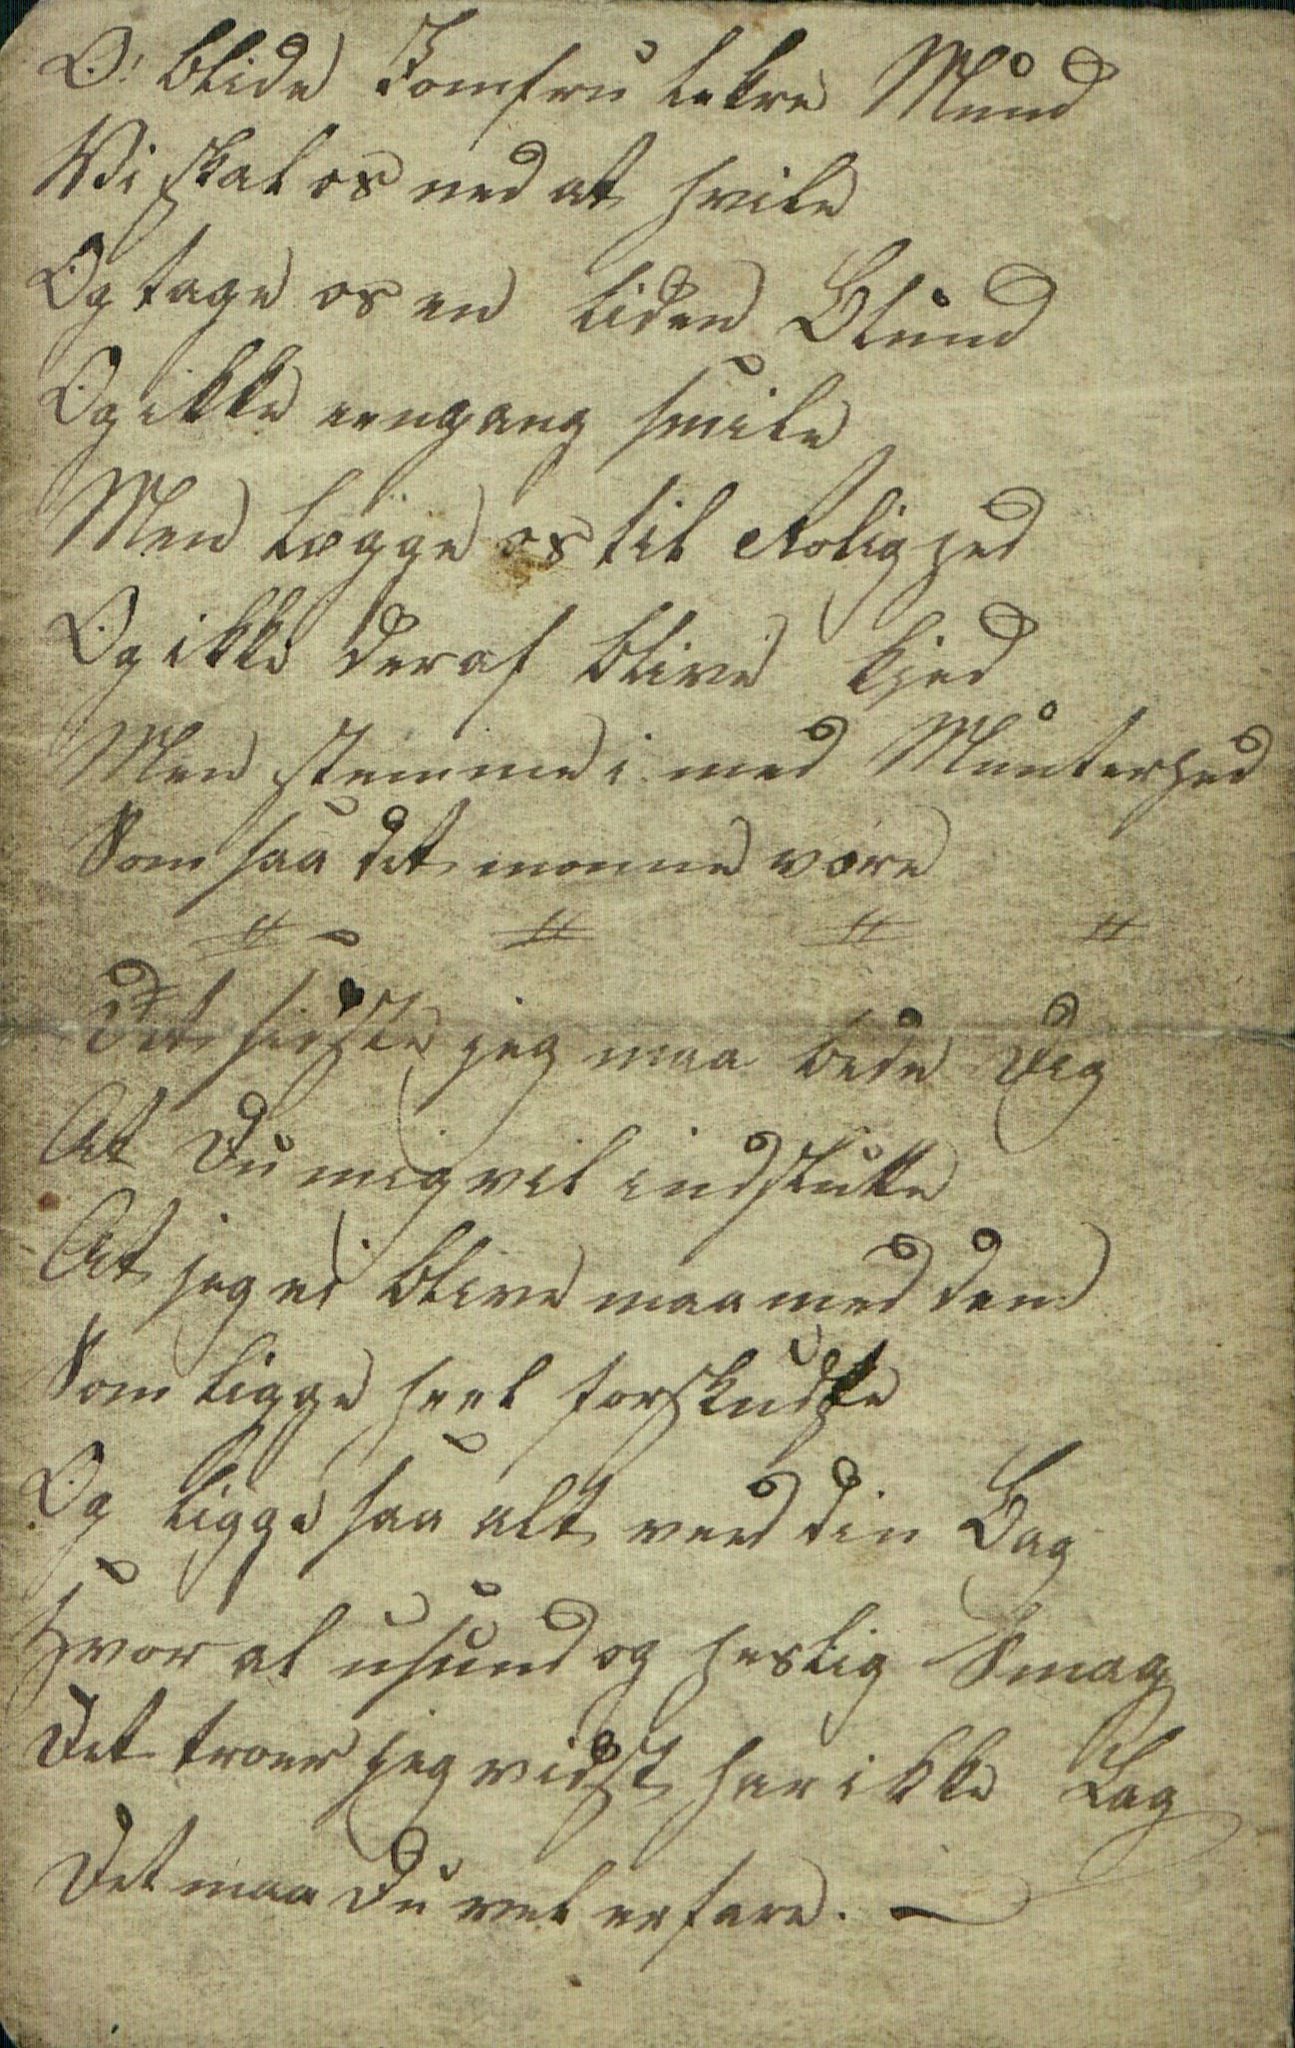 O! blide Jomfru lekre Mund
Vi skal os ned at hvile
Og tage os en liden Blund
Og ikke eengang smile
Men lægge os til Rolighed
Og ikke deraf blive kjed
Men stemme i med Munterhed
Som saa det monne være
# # # #
Det sidste jeg maa bede Dig
At Du mig vil indslutte
At jeg ei blive maa med dem
Som ligge heel forskudte
Og ligge saa alt ved din Bag
Hvor al usund og heslig Smag
Det troer jeg vidst har ikke Lag
Det maa Du vel erfare. —